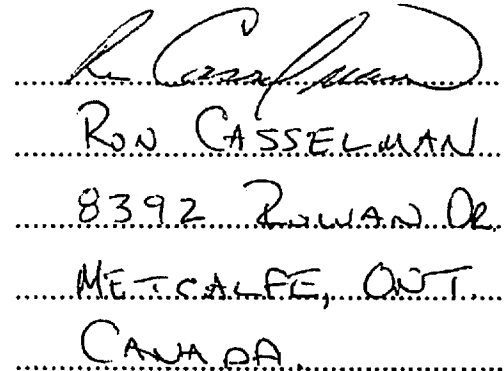 Ron Casselman
RON CASSELMAN
8392 ROWAN DR.
METCALFE, ONT.
CANADA.